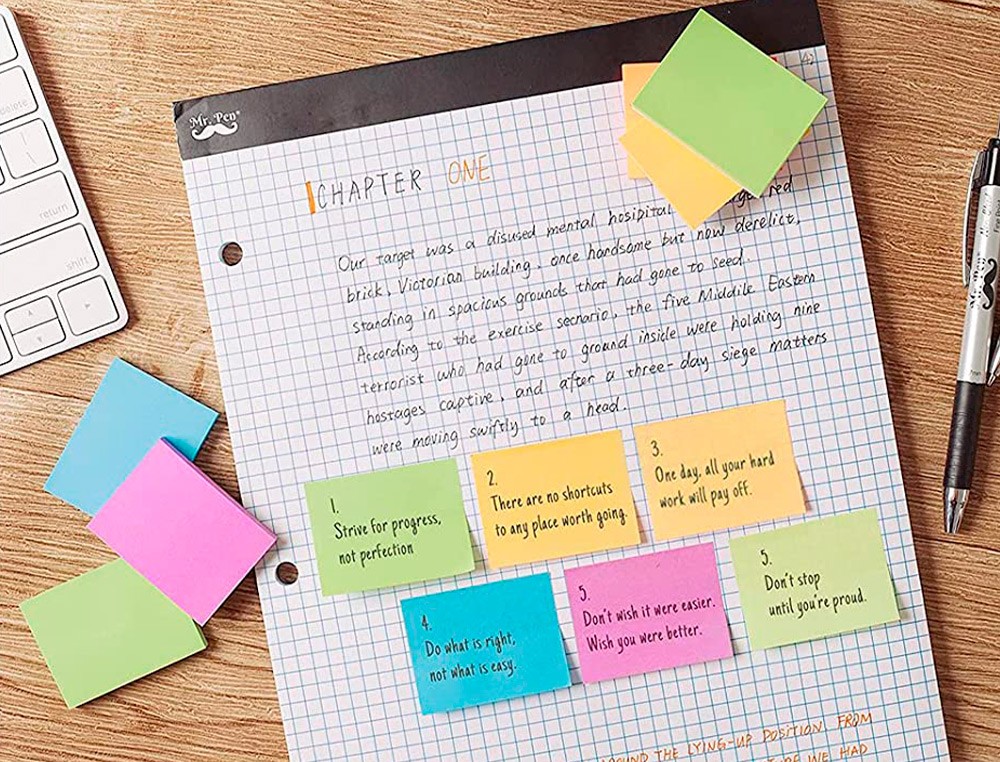 delete
return
shift
Mr. Pen®
CHAPTER ONE
Our target was a disused mental hosipital
brick, Victorian building, once handsome but now derelict,
standing in spacious grounds that had gone to seed.
According to the exercise secnario, the five Middile Eastern
terrorist who had gone to ground inside were holding nine
hostages captive, and after a three-day siege matters
were moving swiftly to a head.
1.
Strive for progress,
not perfection
2.
There are no shortcuts
to any place worth going.
3.
One day, all your hard
work will pay off.
4.
Do what is right,
not what is easy.
5.
Don't wish it were easier.
Wish you were better.
5.
Don't stop
until you're proud.
THE LYING-UP POSITION. FROM
WE HAD
Mr. Pen